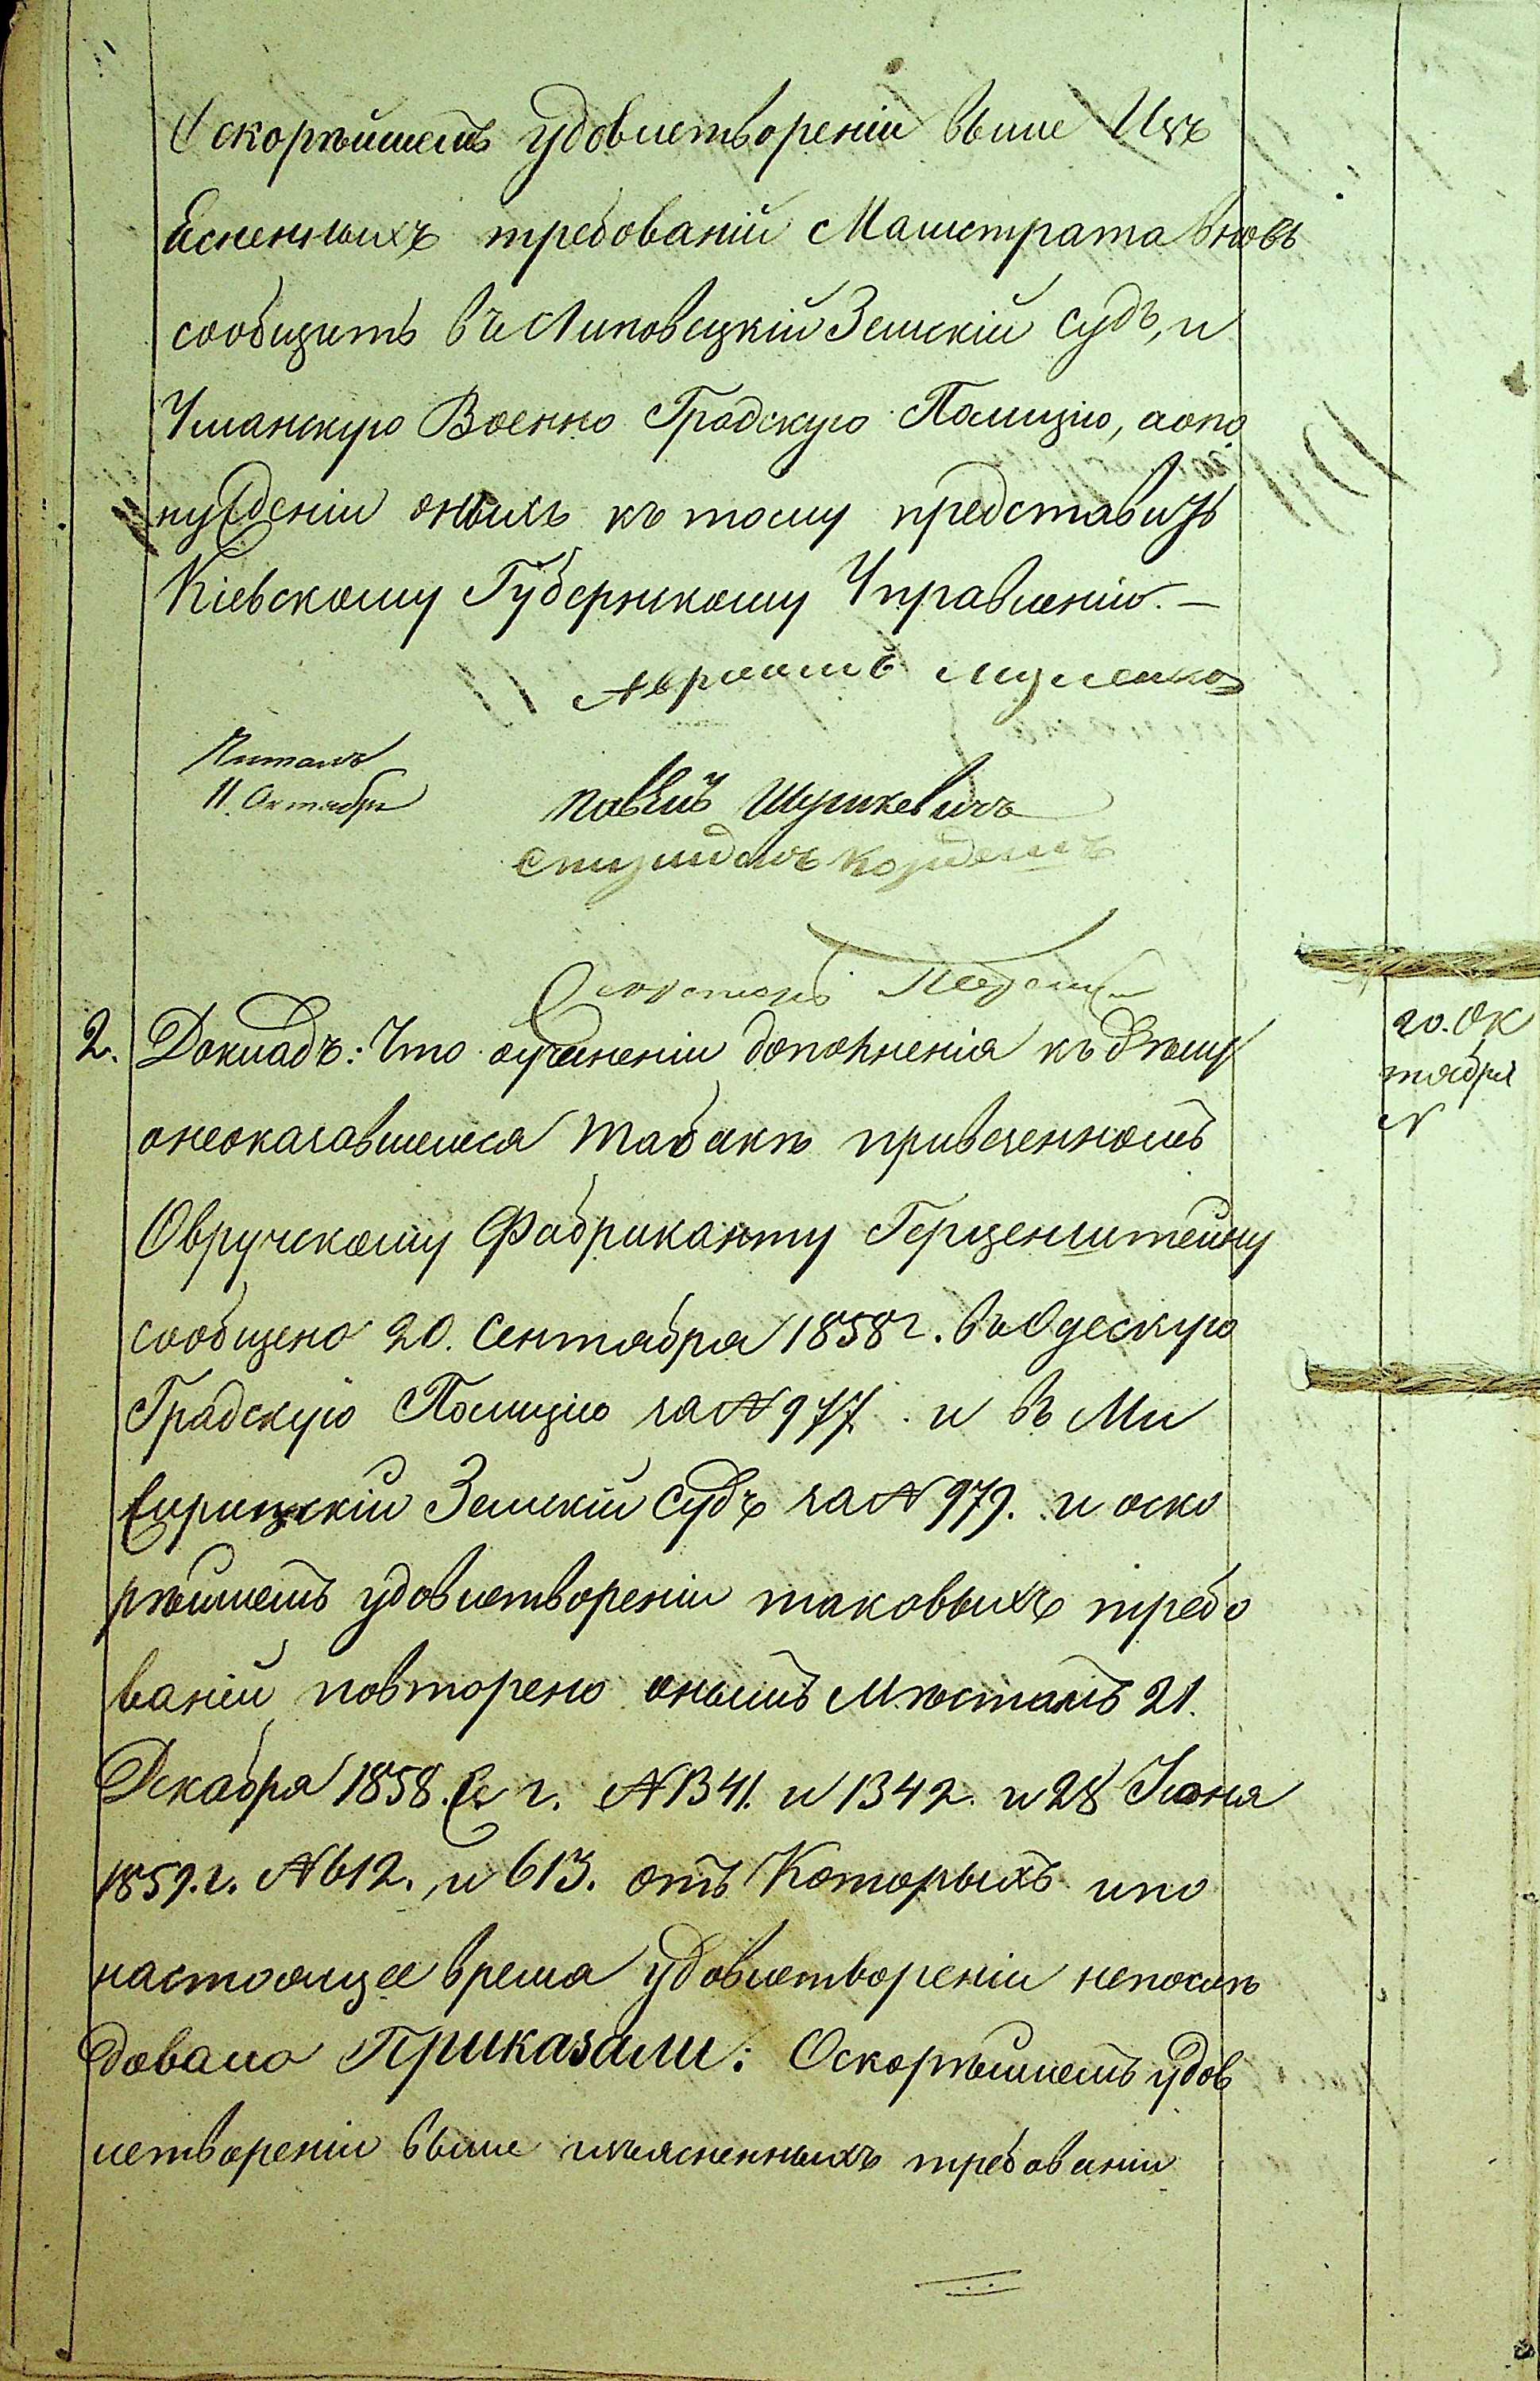 О скорѣйшемъ удовлетвореніи выше Изъ
Ясненныхъ требованій Магистрата вновь
сообщить въ Липовецкій Земскій судъ, и
Уманскую Военно Градскую Полицію, а о по
нужденіи оныхъ къ тому представить
Кіевскому Губернскому Управленію. —
Авраамъ
Читалъ
11 Октября
Павелъ Шушкевичъ
Секретарь
2. Докладъ: Что о учиненіи дополненія къ дѣлу
20. Ок
тября
N
онеоказавшемся табакѣ привезенномъ
Овручскому Фабриканту Герценштейну
сообщено 20. Сентября 1858 г. въ Одескую
Градскую Полицію за N 977. и въ Ми
Земскій Судъ за N 979. и о ско
рѣйшемъ удовлетвореніи таковыхъ требо
ваній повторено онымъ Мѣстамъ 21.
Декабря 1858. г. N 1341. и 1342. и 28 Іюня
1859. г. N 612., и 613. отъ Которыхъ и по
настоящее время удовлетвореніи непослѣ
довало Приказали: О скорѣйшемъ удов
летвореніи выше изъясненныхъ требованій